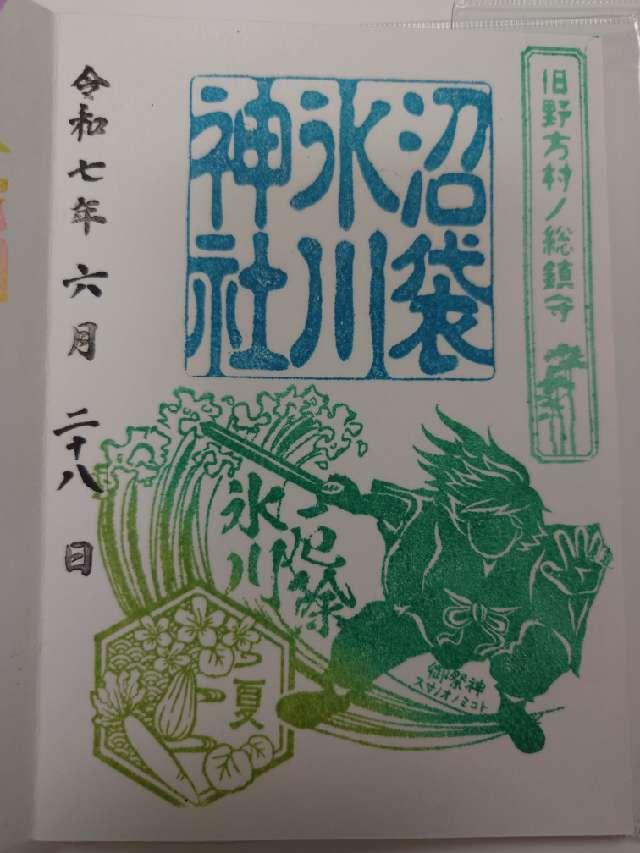 旧野方村ノ総鎮守
沼袋
氷川
神社
厄除
氷川
御祭神
スサノオノミコト
夏
令和七年 六月 二十八日